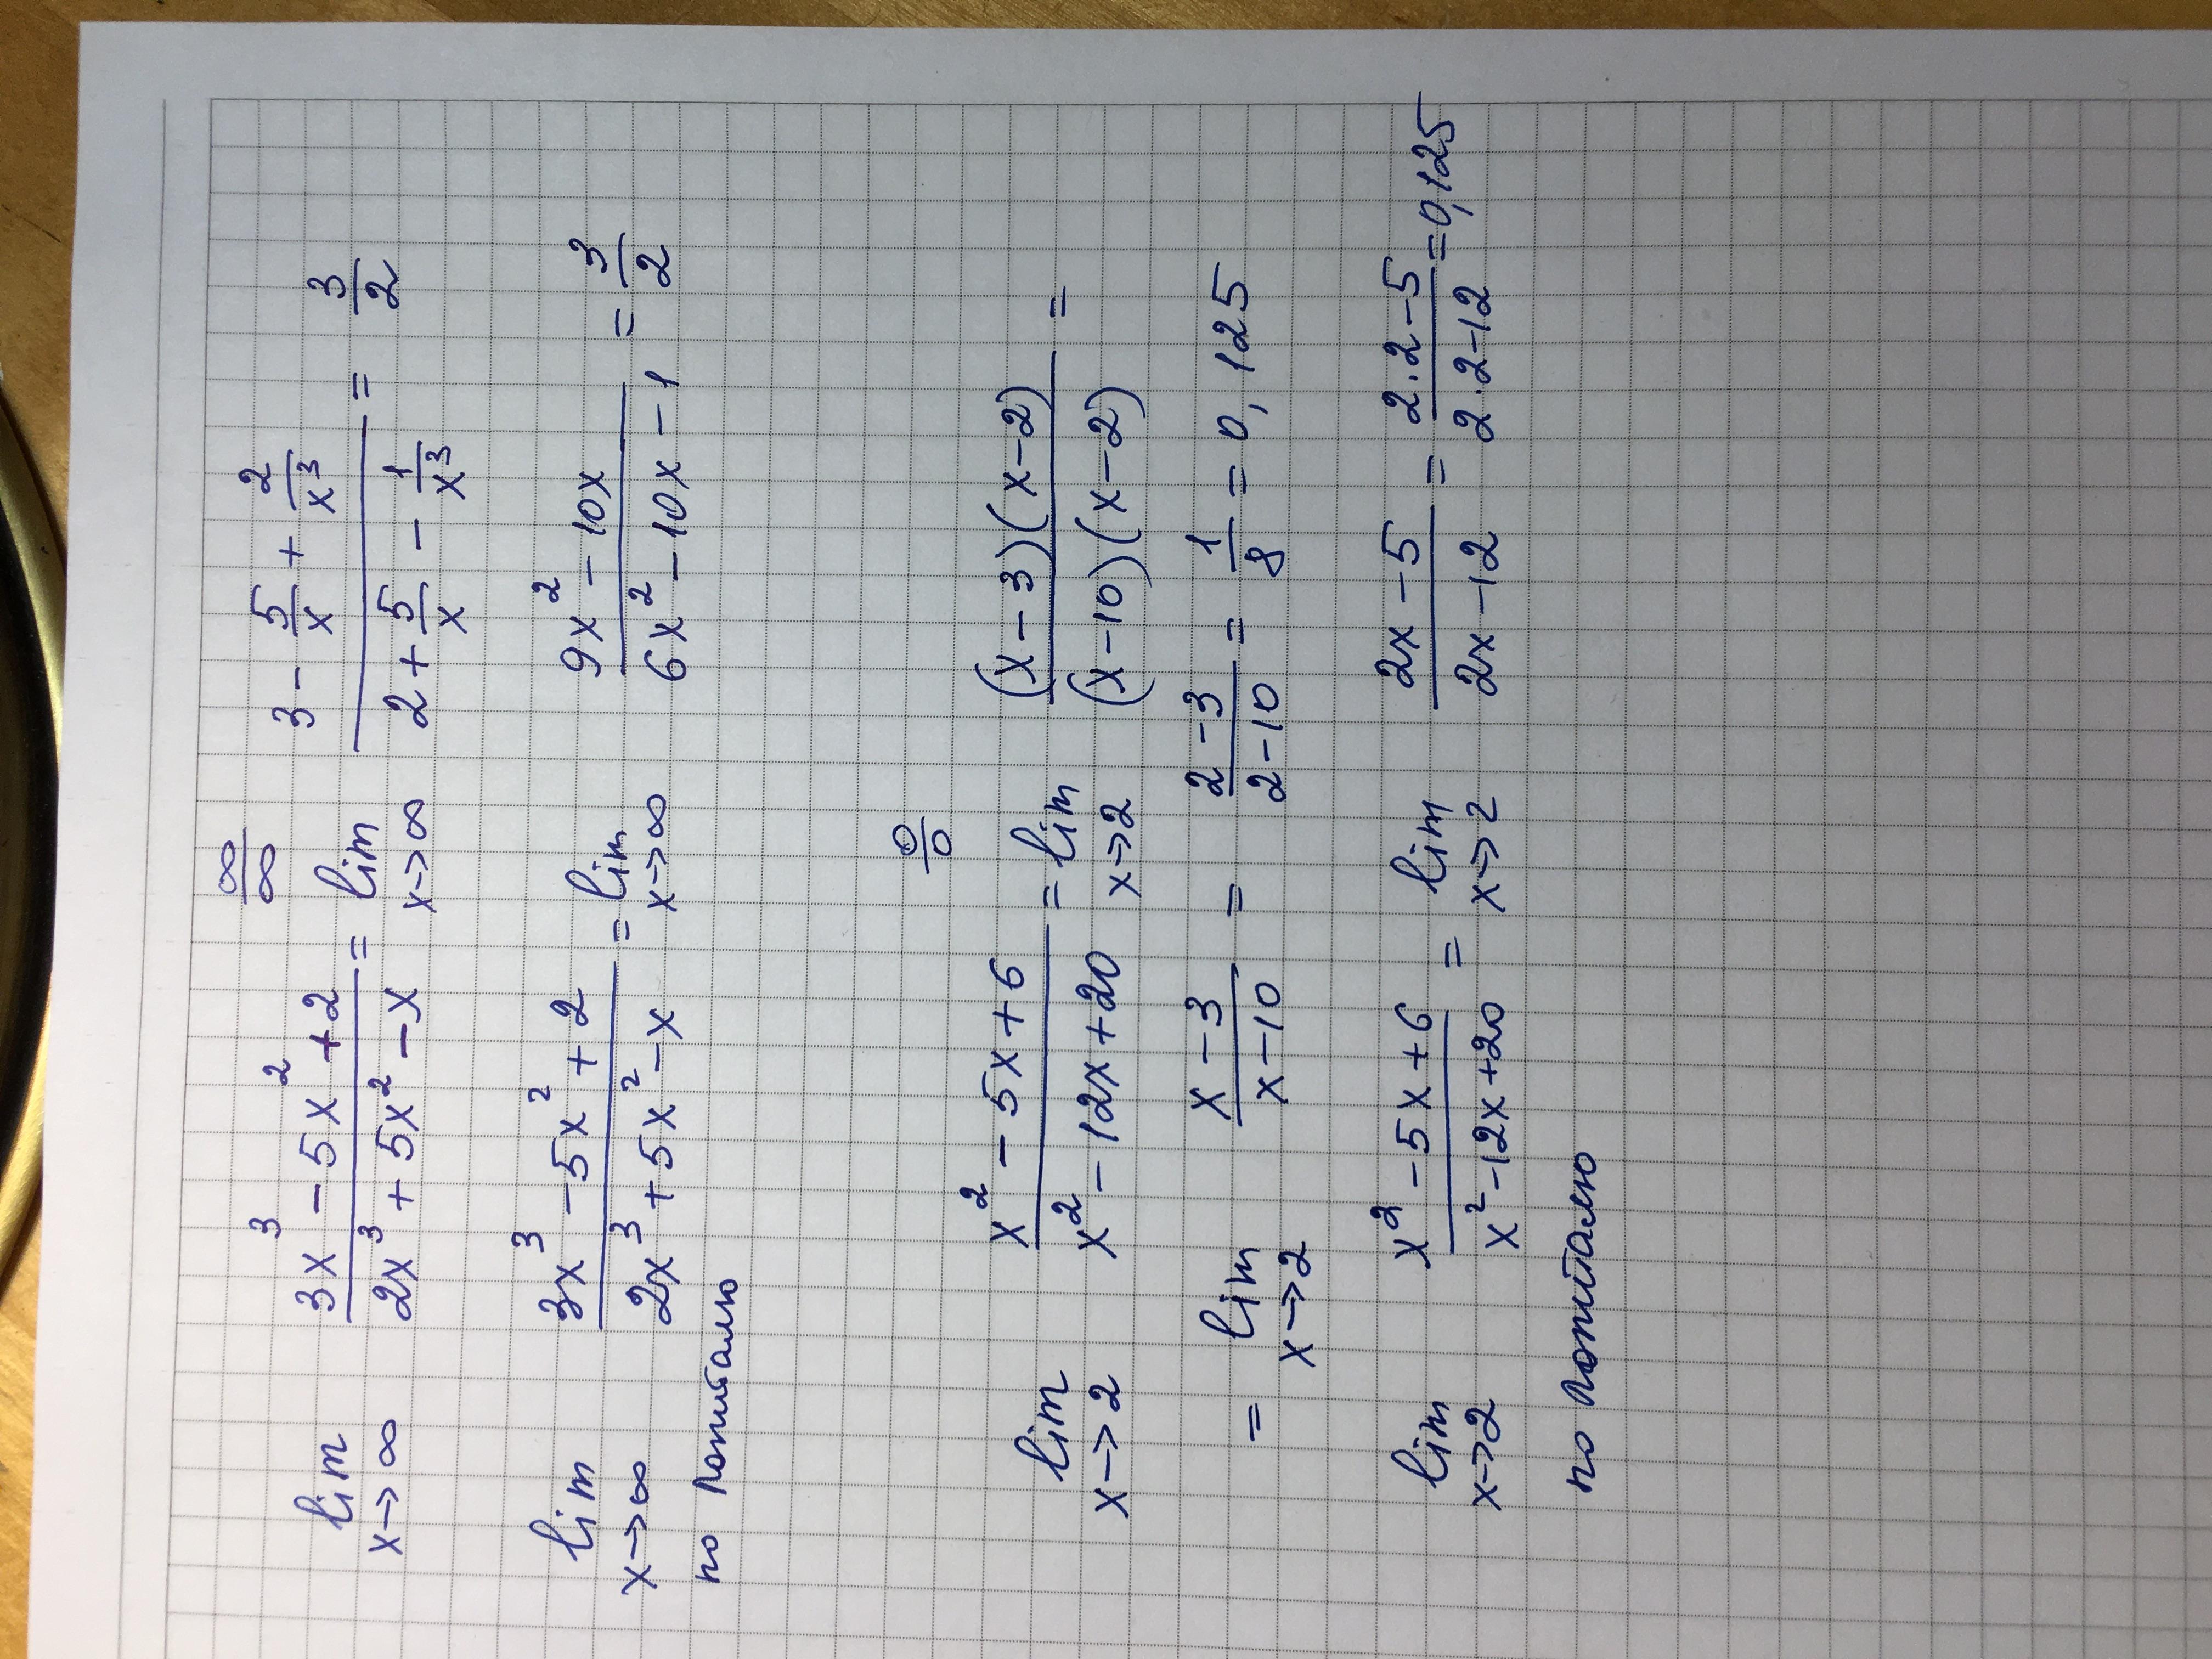 ∞/∞
lim x→∞ (3x³ − 5x² + 2)/(2x³ + 5x² − x) = lim x→∞ (3 − 5/x + 2/x³)/(2 + 5/x − 1/x³) = 3/2
lim x→∞ (3x³ − 5x² + 2)/(2x³ + 5x² − x) = lim x→∞ (9x² − 10x)/(6x² − 10x − 1) = 3/2
по Лопиталю
0/0
lim x→2 (x² − 5x + 6)/(x² − 12x + 20) = lim x→2 ((x − 3)(x − 2))/((x − 10)(x − 2)) =
= lim x→2 (x − 3)/(x − 10) = (2 − 3)/(2 − 10) = 1/8 = 0,125
lim x→2 (x² − 5x + 6)/(x² − 12x + 20) = lim x→2 (2x − 5)/(2x − 12) = (2·2 − 5)/(2·2 − 12) = 0,125
по Лопиталю